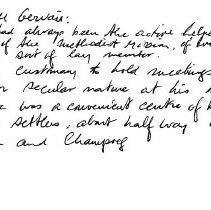 Gervais.
had always been the active helpe
of the Methodist Mission, of
sort of lay member.
customary to hold meetings
or secular nature at his
was a convenient centre of
settlers, about half way
and Champoeg